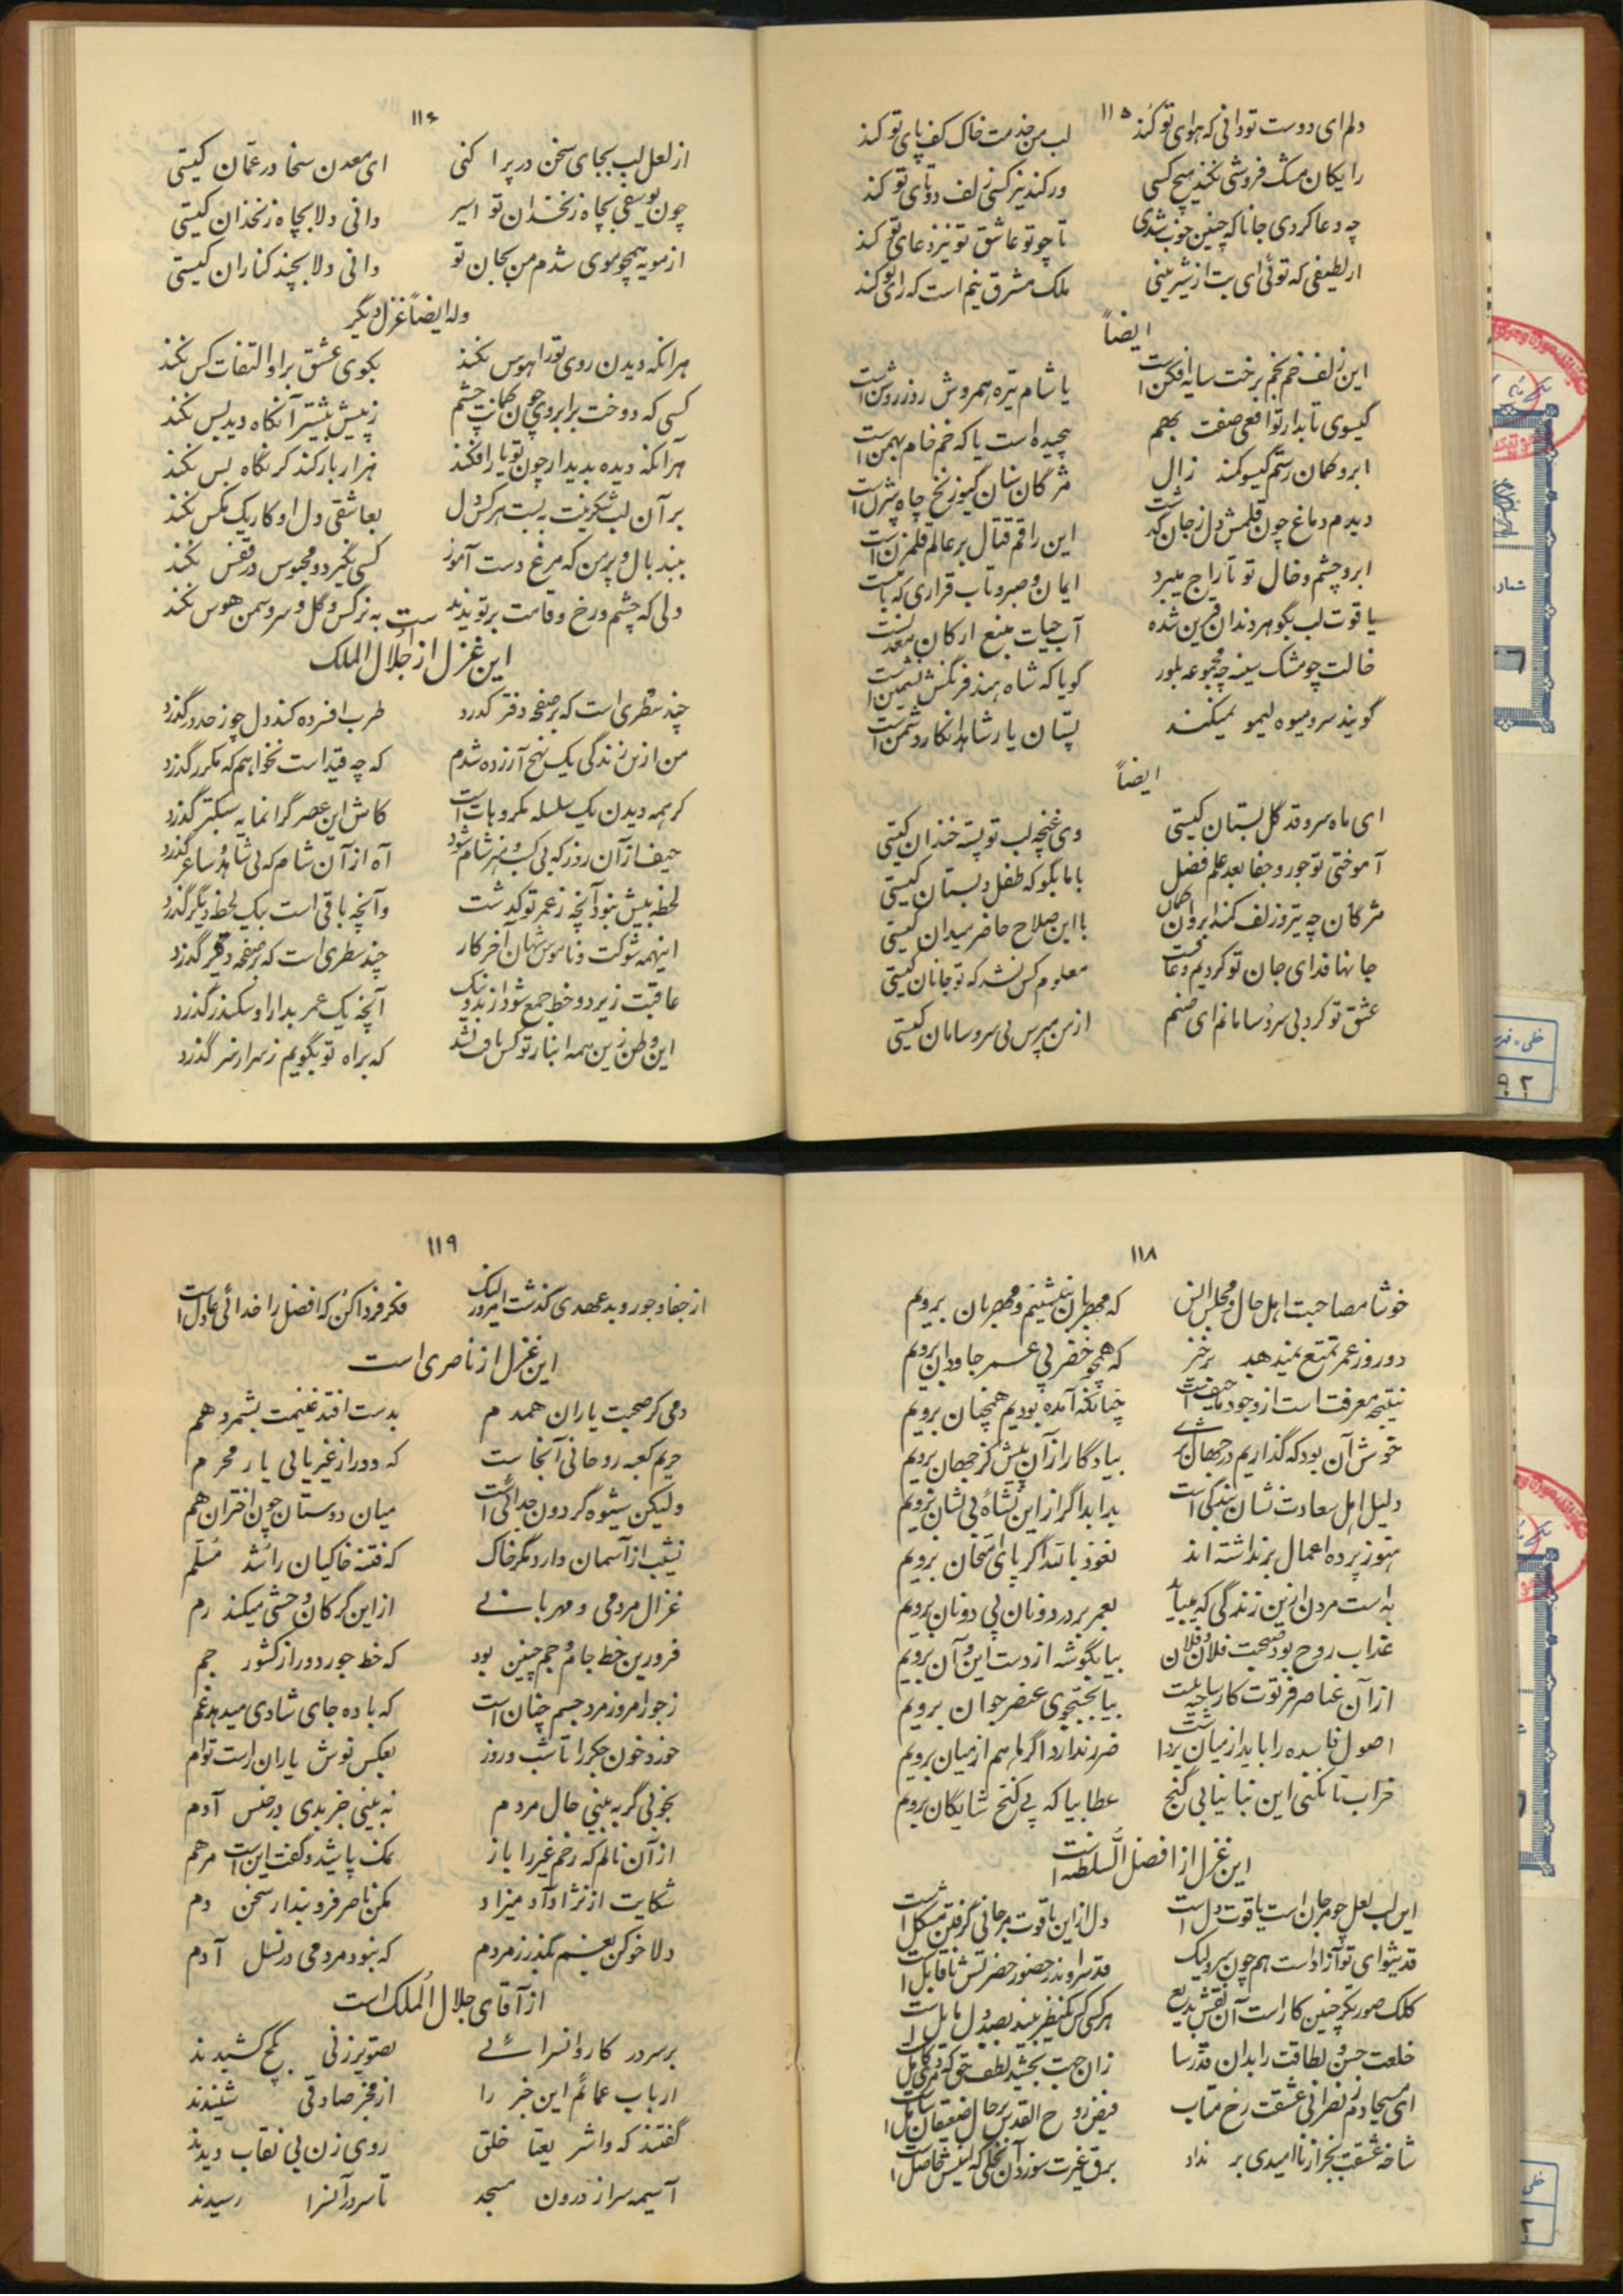 ۱۱۵
دلم ای دوست تو دانی که هوای تو کند لب من خدمت خاک کف پای تو کند
رایگان مشک فروشی نکند هیچ کسی ور کند نیز کسی زلف دوتای تو کند
چه دعا کردی جانا که چنین خوب شدی تا چو تو عاشق تو نیز دعای تو کند
از لطیفی که توئی ای بت از شیرینی ملک مشرق بیم است که رای تو کند
ایضاً
این زلف خم بخم برخت سایه افکن است یا شام تیره همروش روز روشن است
گیسوی تابدار تو افعی صفت بهم پیچیده است یا که خم خام بهمن است
ابرو کمان رستم گیسو کمند زال مژگان سنان گیو زنخ چاه بیژن است
دیدم دماغ چون قلمش دل ز جان گذشت این راقم قتال بر عالم قلمزن است
ابرو چشم و خال تو تاراج میبرد ایمان و صبر و تاب قراری که با منست
یاقوت لب بگوهر دندان قرین شده آب حیات منبع ارکان معدنست
خالت چو مشک سینه چه مجموعه بلور گویا که شاه هند فرنگش نشیمن است
گویند سرو میوه لیمو نمیکند پستان یار شاهد انکار دشمن است
ایضاً
ای ماه سرو قد گل بستان کیستی وی غنچه لب تو پسته خندان کیستی
آموختی تو جور و جفا بعد علم فضل باما بگو که طفل دبستان کیستی
مژگان چه تیر و زلف کمند ابروان کمان با این صلاح حاضر میدان کیستی
جانها فدای جان تو کردیم و عاقبت معلوم کس نشد که تو جانان کیستی
عشق تو کرد بی سر و سامانم ای صنم از من مپرس بی سر و سامان کیستی
۱۱۶
از لعل لب بجای سخن در پرا کنی ای معدن سخا در عمان کیستی
چون یوسفی بچاه زنخدان تو اسیر دانی دلا بچاه زنخدان کیستی
از مویه همچو موی شدم من بجان تو دانی دلا بچند کناران کیستی
وله ایضاً غزل دیگر
هرانکه دیدن روی تو را هوس نکند بکوی عشق برا و التفات کس نکند
کسی که دوخت برابروی چون کمانت چشم ز پیش بیشتر آنگاه دید پس نکند
هرآنکه دیده بدیدار چون تو یار افکند هزار بار کند گر نگاه بس نکند
بر آن لب شکرینت به بست هر کس دل بعاشقی دل او کار یک مگس نکند
ببند بال و پر من که مرغ دست آموز کسی نگیرد و محبوس در قفس نکند
دلی که چشم و رخ و قامت برتو بند است به نرگس و گل و سرو سمن هوس نکند
این غزل از جلال الملک
چند سطری است که بر صفحه دفتر گذرد طرب افسرده کند دل چو ز حد در گذرد
من ازین زندگی یک نهج آزرده شدم که چه قند است نخواهم که مکرر گذرد
گر همه دیدن یک سلسله مکروهات است کاش این عصر گرانمایه سبکتر گذرد
حیف از آن روز که بی کسب هنر شام شود آه از آن شام که بی شاهد و ساغر گذرد
لحظه بیش نبود آنچه ز عمر تو گذشت وآنچه باقی است بیک لحظه دیگر گذرد
اینهمه شوکت و ناموس شهان آخر کار چند سطری است که بر صفحه دفتر گذرد
عاقبت زیر دو خط جمع شود از بد و نیک آنچه یک عمر بدارا و سکندر گذرد
این وطن زین همه ابناء تو کس یاف نشد که براه تو بگویم ز سر از سر گذرد
۱۱۸
خوشا مصاحبت اهل حال و مجلس انس که مهربان بنشینیم و مهربان برویم
دو روز عمر تمتع نمیدهد برخیز که همچو خضر پی عمر جاودان برویم
نتیجه معرفت است از وجود ما حیف است چنانکه آمده بودیم همچنان برویم
خوش آن بود که گذاریم در جهان اثری بیادگار از آن پیش کز جهان برویم
دلیل اهل سعادت نشان بندگی است بدا بدا گر از این نشاهٔ بی نشان برویم
هنوز پرده اعمال برنداشته اند نعوذ بالله اگر پای امتحان برویم
به است مردن ازین زندگی که میباید بعمر بر در دونان پی دو نان برویم
عذاب روح بود صحبت فلان و فلان بیا بگوشه از دست این و آن برویم
از آن عناصر فرتوت کار ساخته نیست بیا بجستجوی عنصر جوان برویم
اصول فاسده را باید از میان برداشت ضرر ندارد اگر ما هم از میان برویم
خراب تا نکنی این بنا نیابی گنج عطا بیا که پی گنج شایگان برویم
این غزل از افضل السلطنه است
این لب لعل چو مرجان است یا قوت دل است دل ازین یاقوت مرجانی گرفتن مشکل است
قد شیوای تو آزاد است هم چون سرو لیک قد سرو اندر حضور حضرتش ناقابل است
کلک صورتگر چنین کار است آن نقش بدیع هر کسی کس یکنظر بیند بصد دل مایل است
خلعت حسن و لطافت را بدان قد رسا زان جهت بخشید لطف حق که در
ای مسیحا دم ز نصرانی عشقت رخ متاب فیض روح القدس بر حال ضعیفان شامل است
شاخه عشقت بجز از ناامیدی بر نداد برق غیرت سوزد آن نخلی که اینش حاصل است
۱۱۹
از جفا و جور و بد عهدی گذشت امروز لیک فکر فردا کن که افضل را خدائی عادل است
این غزل از ناصری است
دمی کز صحبت یاران همدم بدست افتد غنیمت بشمرد هم
حریم کعبه روحانی آنجاست که دور از غیر یابی یار محرم
ولیکن شیوه گردون جدائی است میان دوستان چون اختران هم
نشیب از آسمان دارد مگر خاک که فتنه خاکیان را شد مسلّم
غزال مردمی و مهربانی ازاین گرگان وحشی میکند رم
فرورین خط جام و جم چنین بود که خط جور دور از کشور جم
ز جور امروز مرد جسم چنان است که باده جای شادی میدهد غم
خورد خون جگر را تا شب و روز بعکس نوش یاران است توأم
بخوبی گر به بینی حال مردم نه بینی جز بدی در جنس آدم
از آن نالم که زخم غیر را باز نمک پاشید و گفت این است مرهم
شکایت از نژاد آدمیزاد مکن ناصر فرو بندار سخن دم
دلا خو کن بغم بگذر ز مردم که نبود مردمی در نسل آدم
از آقای جلال الملک است
بر سر در کاروانسرائی تصویر زنی بگچ کشیدند
ارباب عمائم این خبر را از مخبر صادقی شنیدند
گفتند که واشر یعتا خلق روی زن بی نقاب دیدند
آسیمه سر از درون مسجد تا سر در آنسرا رسیدند